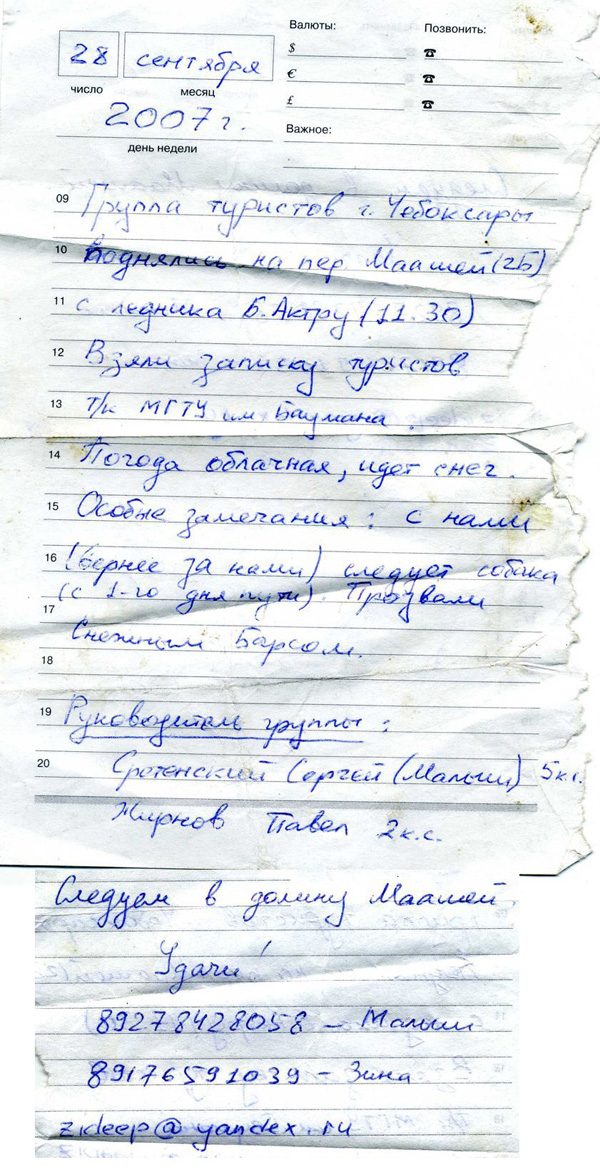 Валюты: Позвонить:
28 сентября $ ☎
число месяц € ☎
2007 г. £ ☎
день недели Важное:
09 Группа туристов г. Чебоксары
10 поднялись на пер Маашей (2Б)
11 с ледника Б. Актру (11.30)
12 Взяли записку туристов
13 т/к МГТУ им Баумана.
14 Погода облачная, идет снег.
15 Особые замечания: с нами
16 (вернее за нами) следует собака
(с 1-го дня пути). Прозвали
17
Снежным Барсом.
18
19 Руководитель группы:
20 Сретенский Сергей (Малыш) 5к.с.
Жирнов Павел 2к.с.
Следуем в долину Маашей.
Удачи!
89278428058 – Малыш
89176591039 – Зина
zideep@yandex.ru